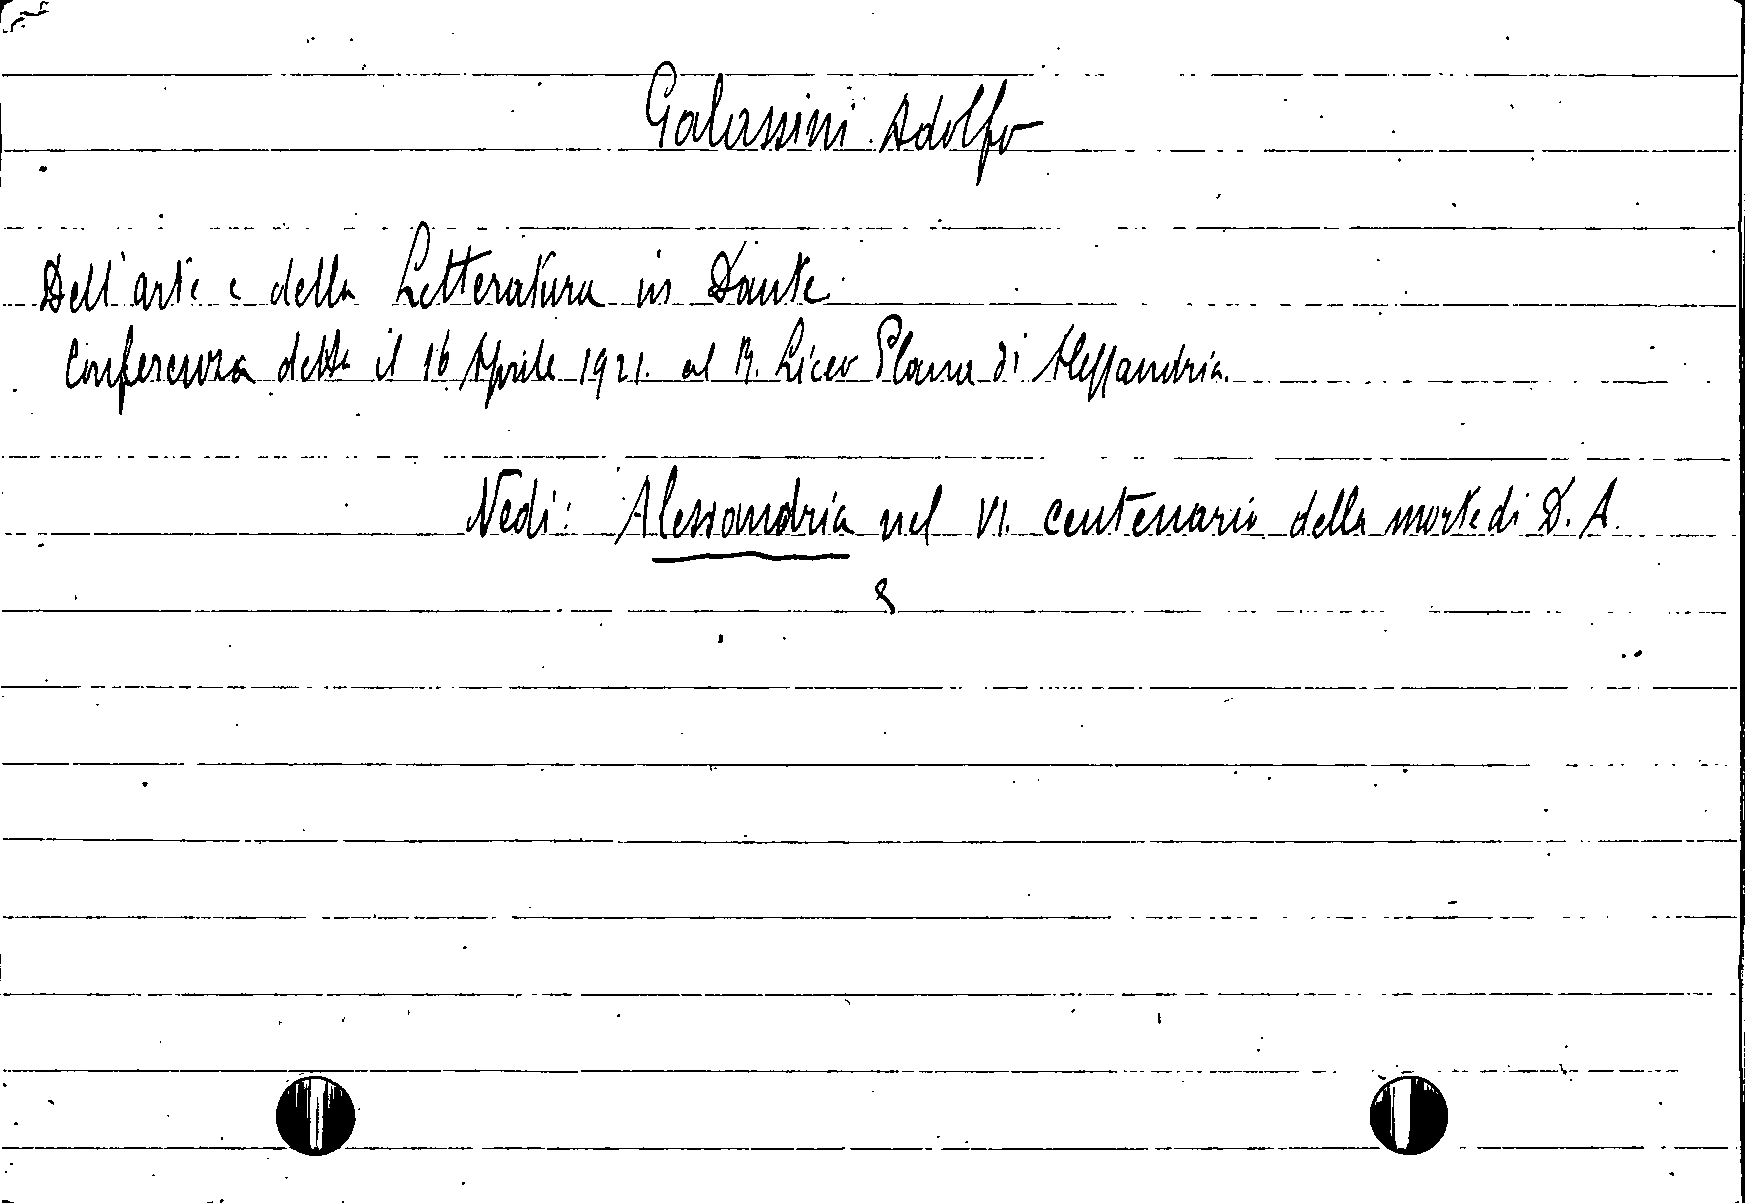 Galassini Adolfo
Dell'arte e della Letteratura in Dante.
Conferenza detta il 16 Aprile 1921. al R. Liceo Plana di Alessandria.
Vedi: Alessandria nel VI. centenario della morte di D. A.